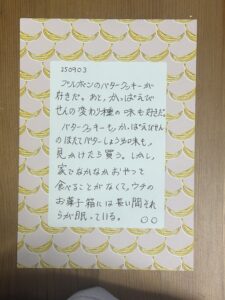 250903
ブルボンのバタークッキーが
好きだ。あと、かっぱえび
せんの変わり種の味も好きだ。
バタークッキーも、かっぱえびせん
のほたてバターしょうゆ味も、
見かけたら買う。しかし、
家でなかなかおやつを
食べることがなくて、ウチの
お菓子箱には長い間それ
らが眠っている。
○○